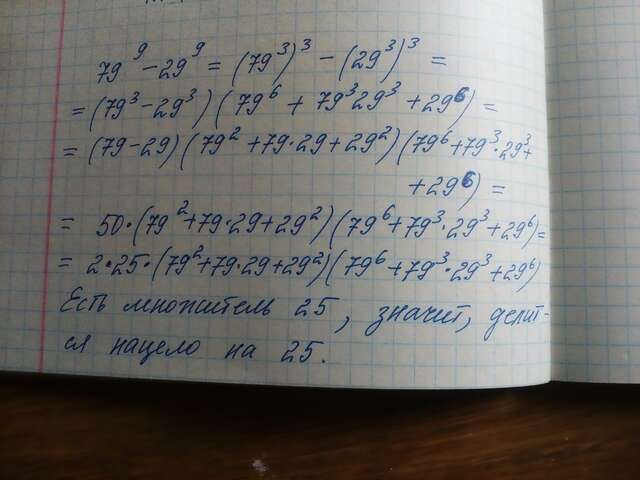 79⁹ - 29⁹ = (79³)³ - (29³)³ =
= (79³ - 29³)(79⁶ + 79³29³ + 29⁶) =
= (79 - 29)(79² + 79·29 + 29²)(79⁶ + 79³·29³ +
+ 29⁶) =
= 50·(79² + 79·29 + 29²)(79⁶ + 79³·29³ + 29⁶) =
= 2·25·(79² + 79·29 + 29²)(79⁶ + 79³·29³ + 29⁶)
Есть множитель 25, значит, делит-
ся нацело на 25.